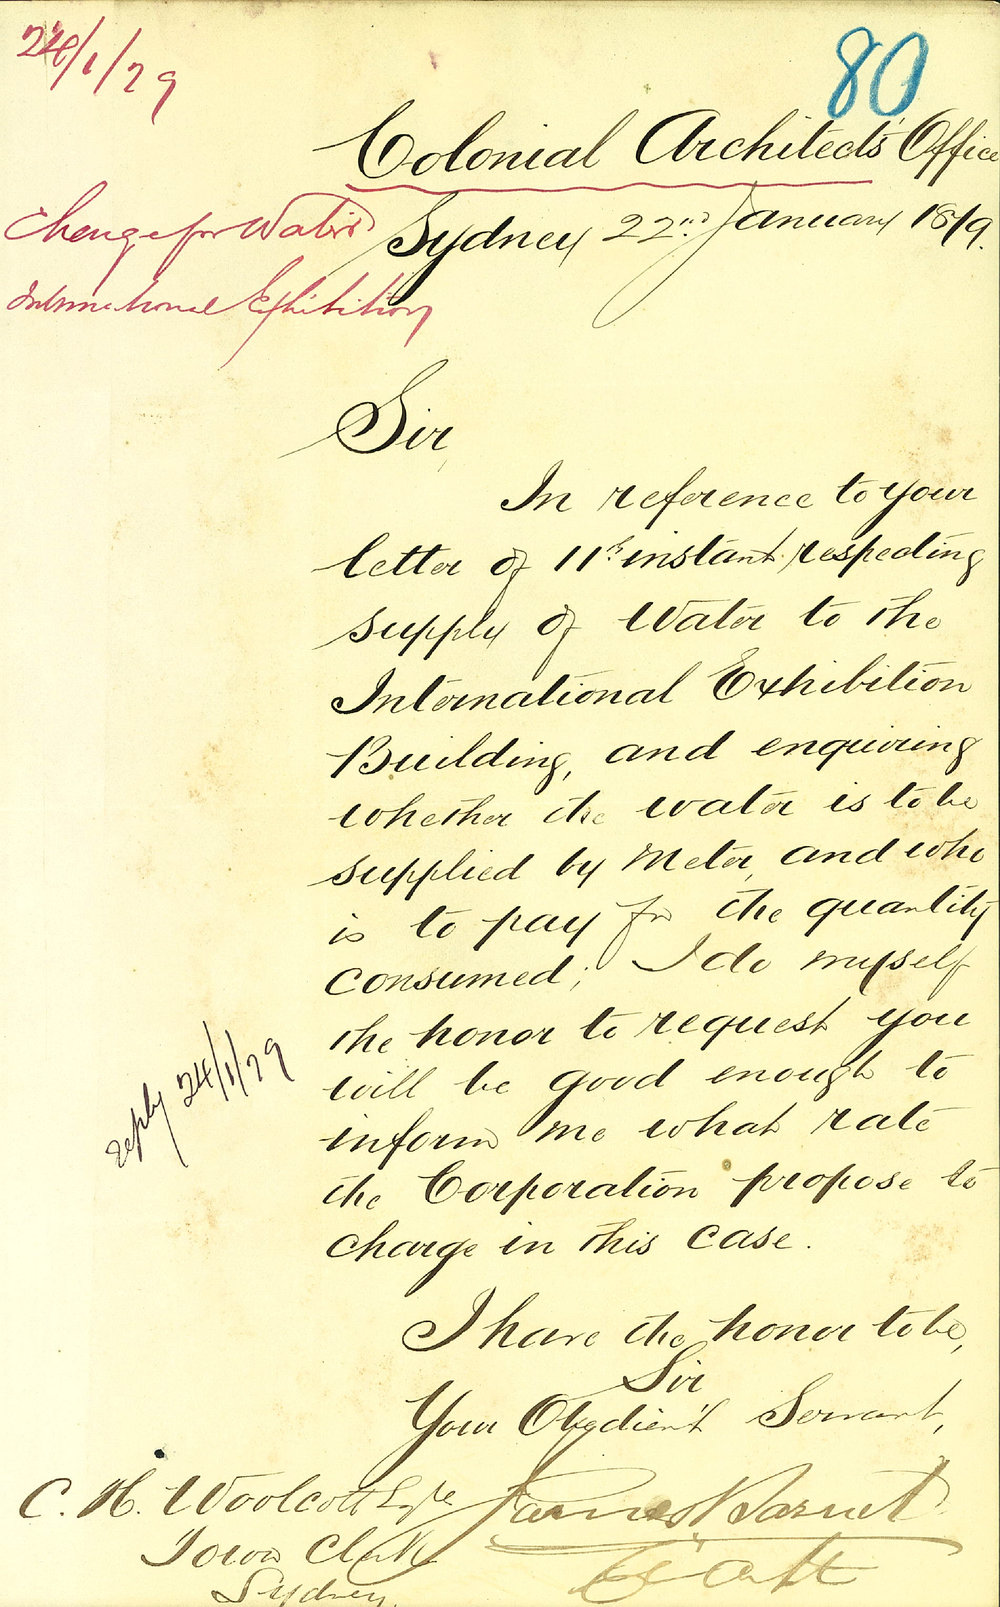 24/1/79
80
Colonial Architects' Office
Sydney 22nd January 1879.
Charge for Water
International Exhibition
Sir,
In reference to your
letter of 11th instant respecting
supply of Water to the
International Exhibition
Building, and enquiring
whether the water is to be
supplied by Meter, and who
is to pay for the quantity
consumed; I do myself
the honor to request you
will be good enough to
inform me what rate
the Corporation propose to
charge in this case.
reply 24/1/79
I have the honor to be,
Sir
Your Obedient Servant,
James Barnet
Col Archt
C. H. Woolcott Esqre
Town Clerk
Sydney.